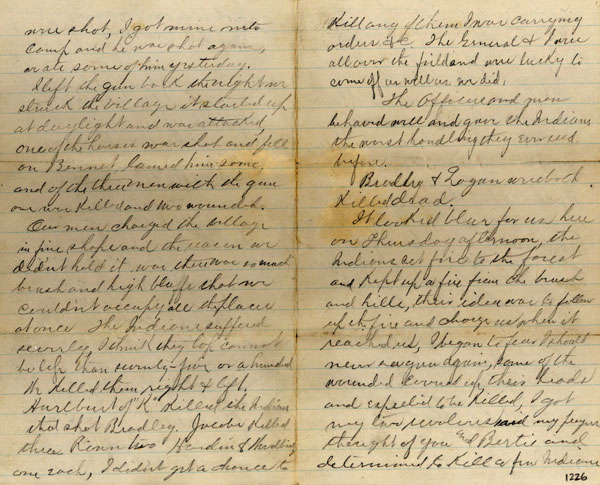 were shot, I got mine into
camp and he was shot again,
we ate some of him yesterday.
I left the gun back the night we
struck the village it started up
at daylight and was attacked,
one of the horses was shot and fell
on Bennet, lamed him some,
and of the three men with the gun
one was Killed and two wounded.
Our men charged the village
in fine shape and the reason we
didn't hold it was there was so much
brush and high bluffs that we
couldn't occupy all the places
at once The Indians suffered
severely I think they lost cannot
be less than seventy-five or a hundred
We Killed them right & left,
Hurlburt of "K" Killed the Indian
that shot Bradley. Jacobs Killed
three Hardin &
one each, I didn't get a chance to
Kill any of them I was carrying
orders &c. The General & I were
all over the field and were lucky to
come off as well as we did.
The Officers and men
behaved well and gave the Indians
the worst handling they ever got
before.
Bradley & Logan were both
Killed dead.
It looked blue for us here
on Thursday afternoon, the
Indians set fire to the forest
and Kept up a fire from the brush
and hills, their idea was to follow
up the fire and charge us when it
reached us, I began to fear I should
never see you again, some of the
wounded covered up their heads
and expected to be Killed, I got
my two revolvers said my prayers
thought of you and Bertie and
determined to Kill a few Indians
1226